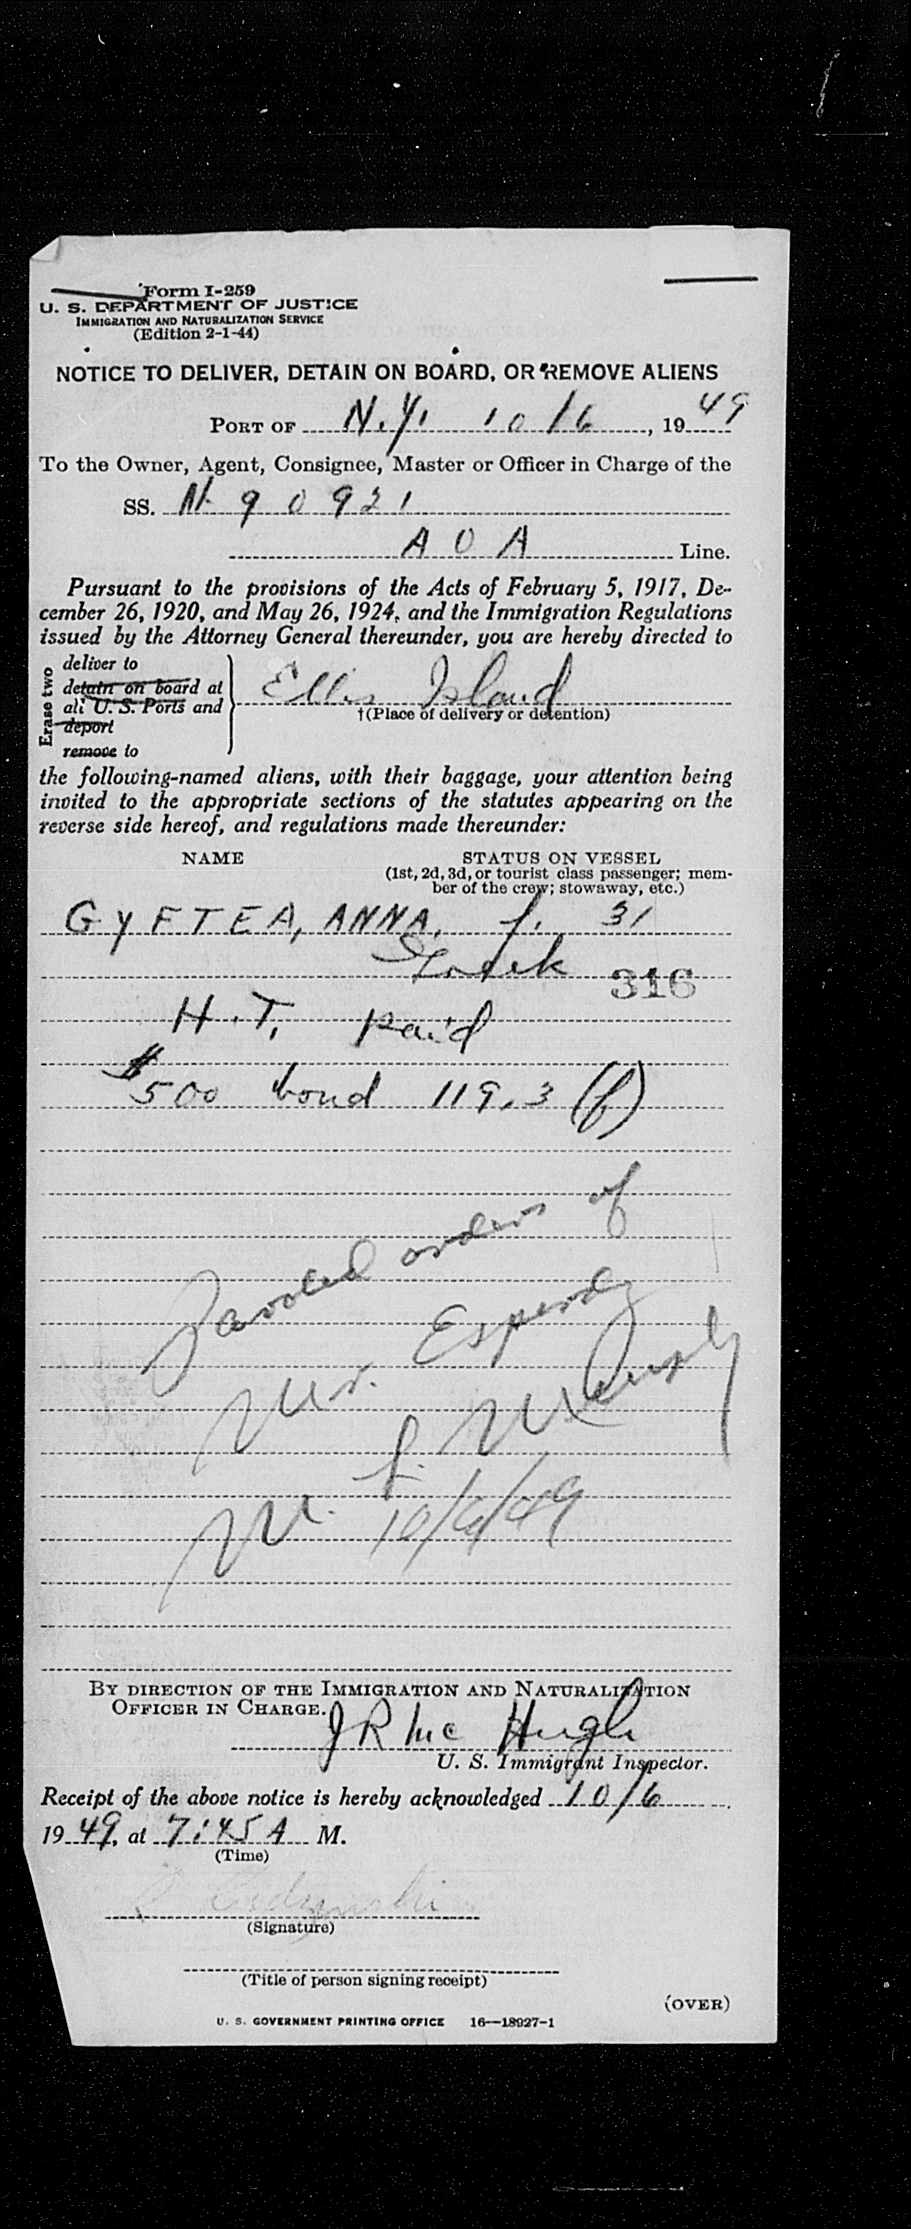 Form I-259
U. S. DEPARTMENT OF JUSTICE
IMMIGRATION AND NATURALIZATION SERVICE
(Edition 2-1-44)
NOTICE TO DELIVER, DETAIN ON BOARD, OR REMOVE ALIENS
PORT OF N.Y. 10/6, 1949
To the Owner, Agent, Consignee, Master or Officer in Charge of the
SS. N 90921
A O A Line.
Pursuant to the provisions of the Acts of February 5, 1917, De-
cember 26, 1920, and May 26, 1924, and the Immigration Regulations
issued by the Attorney General thereunder, you are hereby directed to
Erase two
deliver to
detain on board at
all U. S. Ports and
deport
remove to
Ellis Island
†(Place of delivery or detention)
the following-named aliens, with their baggage, your attention being
invited to the appropriate sections of the statutes appearing on the
reverse side hereof, and regulations made thereunder:
NAME STATUS ON VESSEL
(1st, 2d, 3d, or tourist class passenger; mem-
ber of the crew; stowaway, etc.)
GYFTEA, ANNA. f. 31
Greek 316
H.T. paid
$500 bond 119.3 (f)
Paroled orders of
Mr. Esperdy
10/6/49
BY DIRECTION OF THE IMMIGRATION AND NATURALIZATION
OFFICER IN CHARGE.
J R Mc Hugh
U. S. Immigrant Inspector.
Receipt of the above notice is hereby acknowledged 10/6
1949, at 7:45 A M.
(Time)
(Signature)
(Title of person signing receipt)
(OVER)
U. S. GOVERNMENT PRINTING OFFICE 16—18927-1